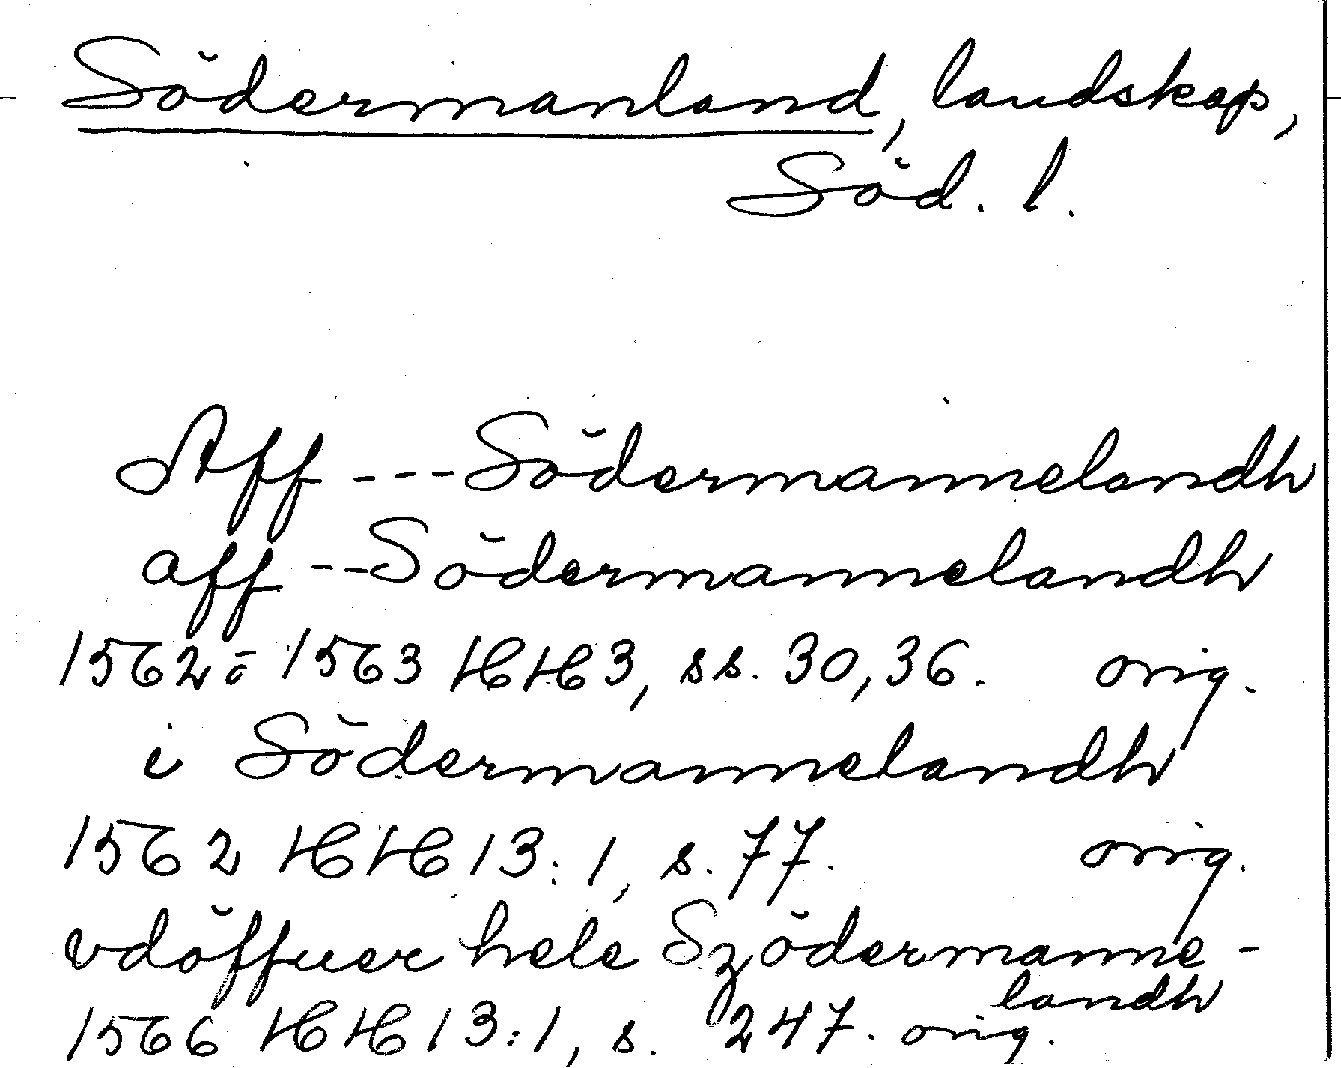 Södermanland, landskap,
Söd. l.
Aff --- Södermannelandh
aff -- Södermannelandh
1562 ö 1563 HH 3, ss. 30, 36. orig.
i Södermannelandh
1562 HH 13:1, s. 77. orig.
vdöffuer hele Szödermanne-
landh
1566 HH 13:1, s. 247. orig.